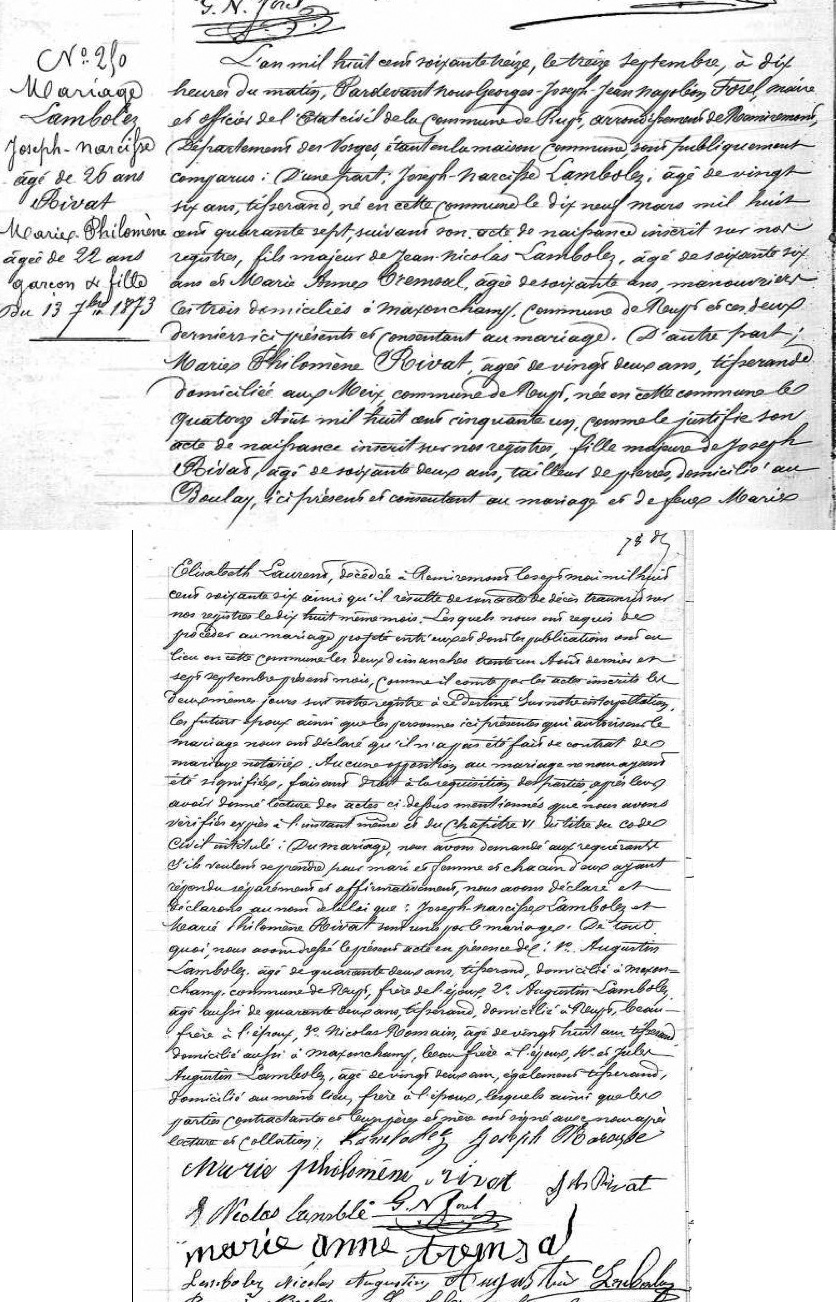 G. N. Forel
N° 250
Mariage
Lambolez
Joseph-narcisse
âgé de 26 ans
&
Rivat
Marie Philomène
âgée de 22 ans
garçon & fille
Du 13 7bre 1873
L'an mil huit cent soixante treize, le treize septembre, à dix
heures du matin, Pardevant nous Georges-Joseph-Jean napoléon Forel, maire
et officier de l'Etat civil de la commune de Rupt, arrondissement de Remiremont,
Département des Vosges, étant en la maison commune, sont publiquement
comparus : D'une part, Joseph-narcisse Lambolez, âgé de vingt
six ans, tisserand, né en cette commune le dix neuf mars mil huit
cent quarante sept, suivant son acte de naissance inscrit sur nos
registres, fils majeur de Jean-Nicolas Lambolez, âgé de soixante six
ans et Marie Anne Tremsal, âgée de soixante ans, manouvriers
les trois domiciliés à maxonchamp, commune de Rupt et ces deux
derniers ici présents et consentant au mariage. D'autre part ;
Marie Philomène Rivat, âgée de vingt deux ans, tisserande
domiciliée aux Meix, commune de Rupt, née en cette commune le
quatorze Août mil huit cent cinquante un, comme le justifie son
acte de naissance inscrit sur nos registres, fille majeure de Joseph
Rivat, âgé de soixante deux ans, tailleur de pierres, domicilié au
Boulay, ici présent et consentant au mariage et de feue Marie
Elisabeth Laurent, décédée à Remiremont le sept mai mil huit
cent soixante six ainsi qu'il résulte de son acte de décès transcrit sur
nos registres le dix huit même mois. Lesquels nous ont requis de
procéder au mariage projeté entr'eux et dont les publications ont eu
lieu en cette commune les deux dimanches trente un Août dernier et
sept septembre présent mois, comme il conste par les actes inscrits les
deux mêmes jours sur notre registre à ce destiné. Sur notre interpellation,
les futurs époux ainsi que les personnes ici présentes qui autorisent le
mariage nous ont déclaré qu'il n'a pas été fait de contrat de
mariage notarié. Aucune opposition au mariage ne nous ayant
été signifiée, faisant droit à la requisition des parties, après leur
avoir donné lecture des actes ci-dessus mentionnés que nous avons
vérifiés exprès à l'instant même et du Chapitre VI du titre du code
Civil intitulé : Du mariage, nous avons demandé aux requérants
s'ils veulent se prendre pour mari et femme et chacun d'eux ayant
répondu séparément et affirmativement, nous avons déclaré et
déclarons au nom de la loi que : Joseph-narcisse Lambolez et
Marie Philomène Rivat sont unis par le mariage. De tout
quoi, nous avons dressé le présent acte en présence de : 1° Augustin
Lambolez, âgé de quarante deux ans, tisserand, domicilié à maxon=
champ, commune de Rupt, frère de l'époux, 2° Augustin Lambolez,
âgé aussi de quarante deux ans, tisserand, domicilié à Rupt, beau-
frère à l'époux, 3° Nicolas Romain, âgé de vingt huit ans, tisserand
domicilié aussi à maxonchamp, beau frère à l'époux, 4° et Jules
Augustin Lambolez, âgé de vingt deux ans, également tisserand,
domicilié au même lieu, frère à l'époux, lesquels ainsi que les
parties contractantes et leurs pères et mère ont signé avec nous après
lecture et collation ; Lambolez Joseph
Marie philomène Rivat Jh Rivat
Nicolas G. N. Forel
marie anne tremsal
Lambolez Nicolas Augustin Augustin Lambolez